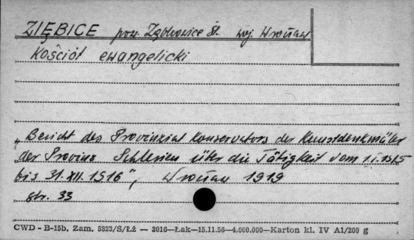 ZIĘBICE pow. Ząbkowice Śl. woj. Wrocław
Kościół ewangelicki
„Bericht des Provinzial Konservators der Kunstdenkmäler
der Provinz Schlesien über die Tätigkeit vom 1.I.1915
bis 31.XII.1916", Wrocław 1919
str. 33
CWD - B-15b, Zam. 5822/S/ŁŻ — 2016—Łak—15.11.56—4.000.000—Karton kl. IV A1/200 g